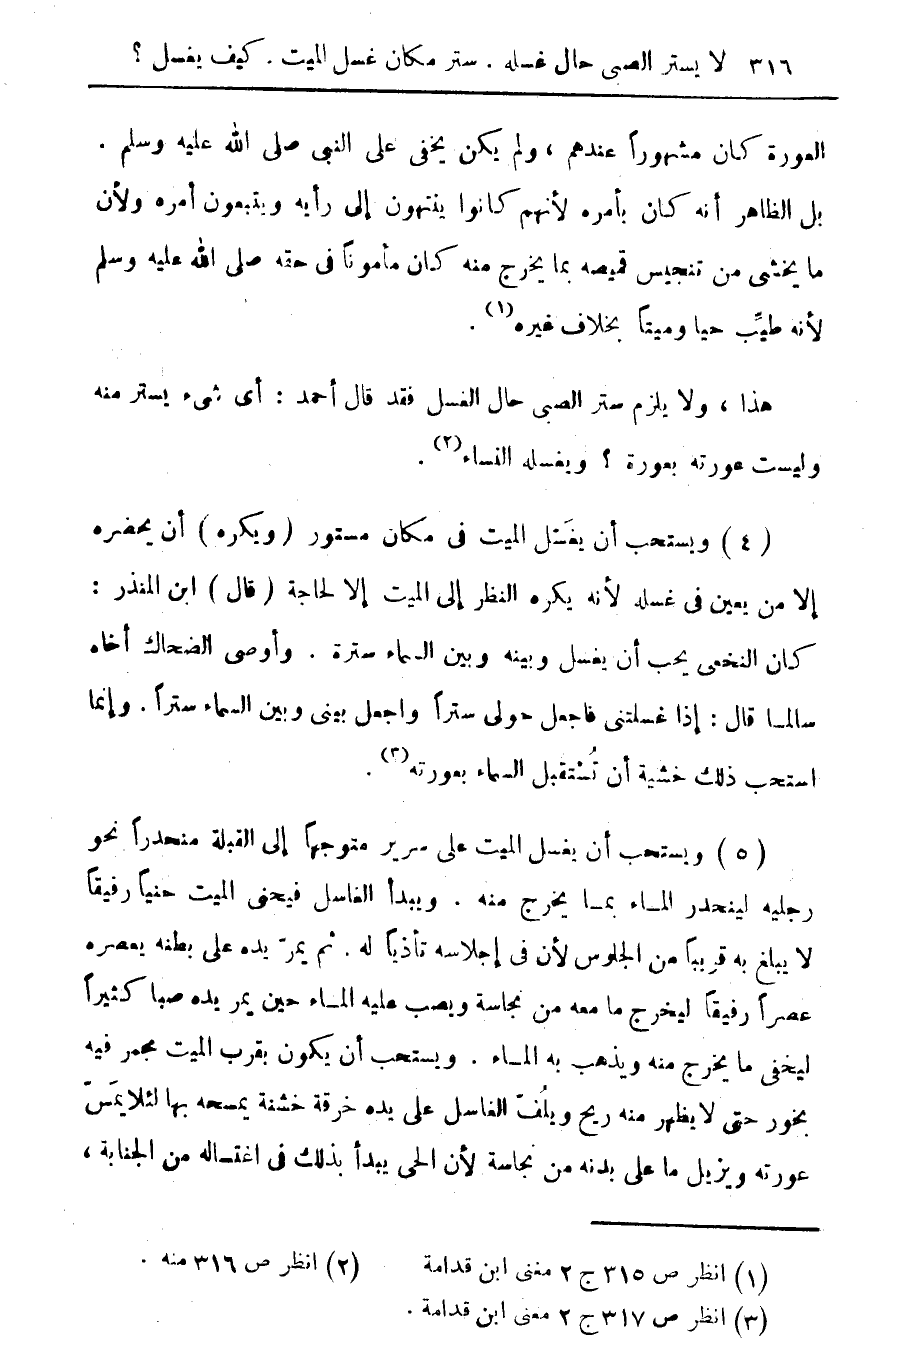 ٣١٦ لا يستر الصبى حال غسله . ستر مكان غسل الميت . كيف يغسل ؟
العورة كان مشهوراً عندهم ، ولم يكن يخفى على النبى صلى الله عليه وسلم .
بل الظاهر أنه كان بأمره لأنهم كانوا ينتهون إلى رأيه ويتبعون أمره ولأن
ما يخشى من تنجيس قميصه بما يخرج منه كان مأموناً فى حقه صلى الله عليه وسلم
لأنه طيِّب حيا وميتاً بخلاف غيره(١) .
هذا ، ولا يلزم ستر الصبى حال الغسل فقد قال أحمد : أى شىء يستر منه
وليست عورته بعورة ؟ ويغسله النساء(٢) .
( ٤ ) ويستحب أن يغَسَّل الميت فى مكان مستور ( ويكره ) أن يحضره
إلا من يعين فى غسله لأنه يكره النظر إلى الميت إلا لحاجة ( قال ) ابن المنذر :
كان النخعى يحب أن يغسل وبينه وبين السماء سترة . وأوصى الضحاك أخاه
سالمـا قال : إذا غسلتنى فاجعل حولى ستراً واجعل بينى وبين السماء ستراً . وإنما
استحب ذلك خشية أن تُسْتقبل السماء بعورته(٣) .
( ٥ ) ويستحب أن يغسل الميت على سرير متوجهاً إلى القبلة منحدراً نحو
رجليه لينحدر المـاء بمـا يخرج منه . ويبدأ الغاسل فيحنى الميت حنياً رفيقاً
لا يبلغ به قريباً من الجلوس لأن فى إجلاسه تأذياً له . ثم يمرّ يده على بطنه يعصره
عصراً رفيقاً ليخرج ما معه من نجاسة ويصب عليه المـاء حين يمر يده صبا كثيراً
ليخفى ما يخرج منه ويذهب به المـاء . ويستحب أن يكون بقرب الميت مجمر فيه
بخور حتى لا يظهر منه ريح ويلُفّ الغاسل على يده خرقة خشنة يمسحه بها لئلا يمَسّ
عورته ويزيل ما على بدنه من نجاسة لأن الحى يبدأ بذلك فى اغتسـاله من الجنابة ،
(١) انظر ص ٣١٥ ج ٢ مغنى ابن قدامة (٢) انظر ص ٣١٦ منه .
(٣) انظر ص ٣١٧ ج ٢ مغنى ابن قدامة .